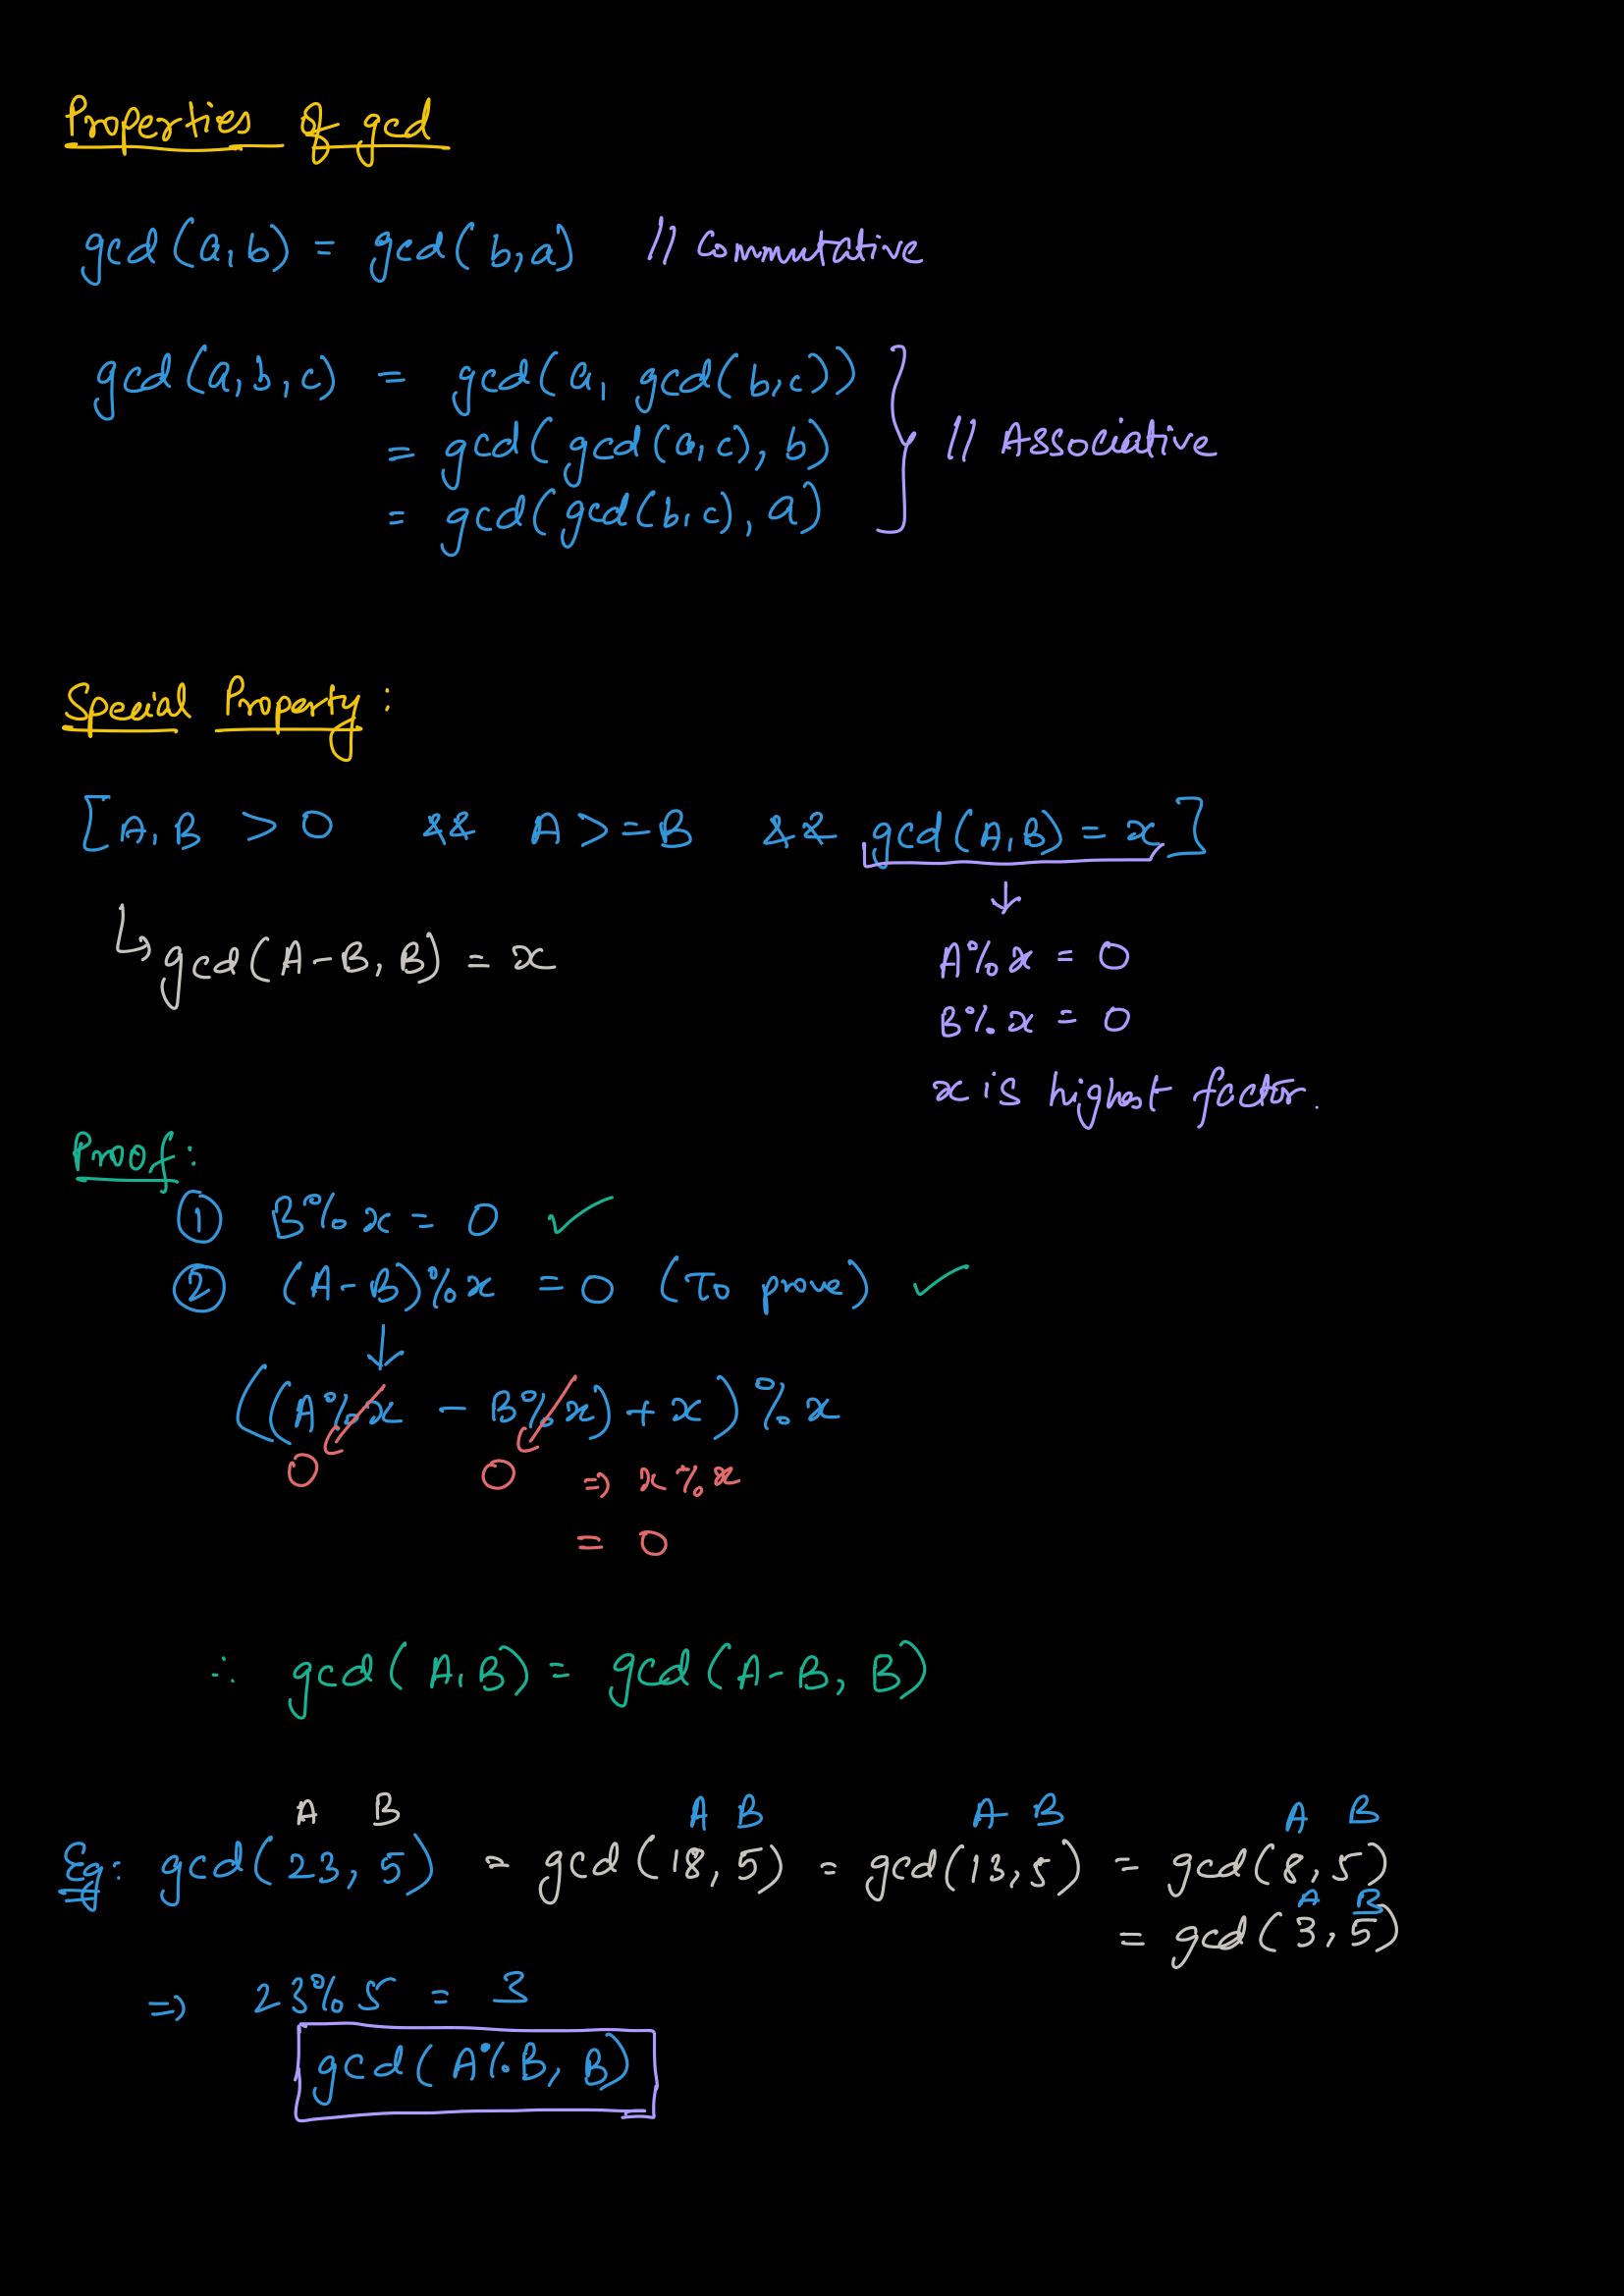 Properties of gcd
gcd(a,b) = gcd(b,a) // Commutative
gcd(a,b,c) = gcd(a, gcd(b,c))
= gcd(gcd(a,c), b)
= gcd(gcd(b,c), a)
// Associative
Special Property:
[A,B > 0 && A >= B && gcd(A,B) = x]
↓
↳ gcd(A-B, B) = x
A%x = 0
B%x = 0
x is highest factor.
Proof:
① B%x = 0 ✓
② (A-B)%x = 0 (To prove) ✓
↓
((A%x - B%x) + x) % x
0 0 ⇒ x%x
= 0
∴ gcd(A,B) = gcd(A-B, B)
A B A B A B A B
Eg: gcd(23, 5) = gcd(18, 5) = gcd(13, 5) = gcd(8, 5)
A B
= gcd(3, 5)
⇒ 23%5 = 3
gcd(A%B, B)